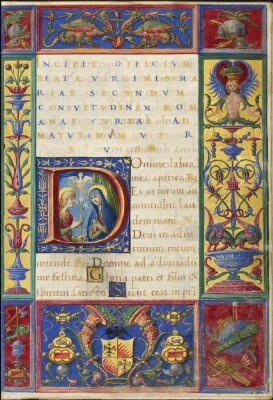 INCEPIT OFFICIUM
BEATÆ VIRGINIS MA
RIAE SECUNDUM
CONSVETUDINEM ROM
ANAE CURIAE AD
MATUTINAM VER
SV
Domine labia
mea aperies. Et
os meum an
nuntiabit lau
dem tuam.
Deus in adiu
torium meum
intende. Domine ad adiuvandu
me festina. Gloria patri et filio &
spiritui sancto. Sicut erat in pri